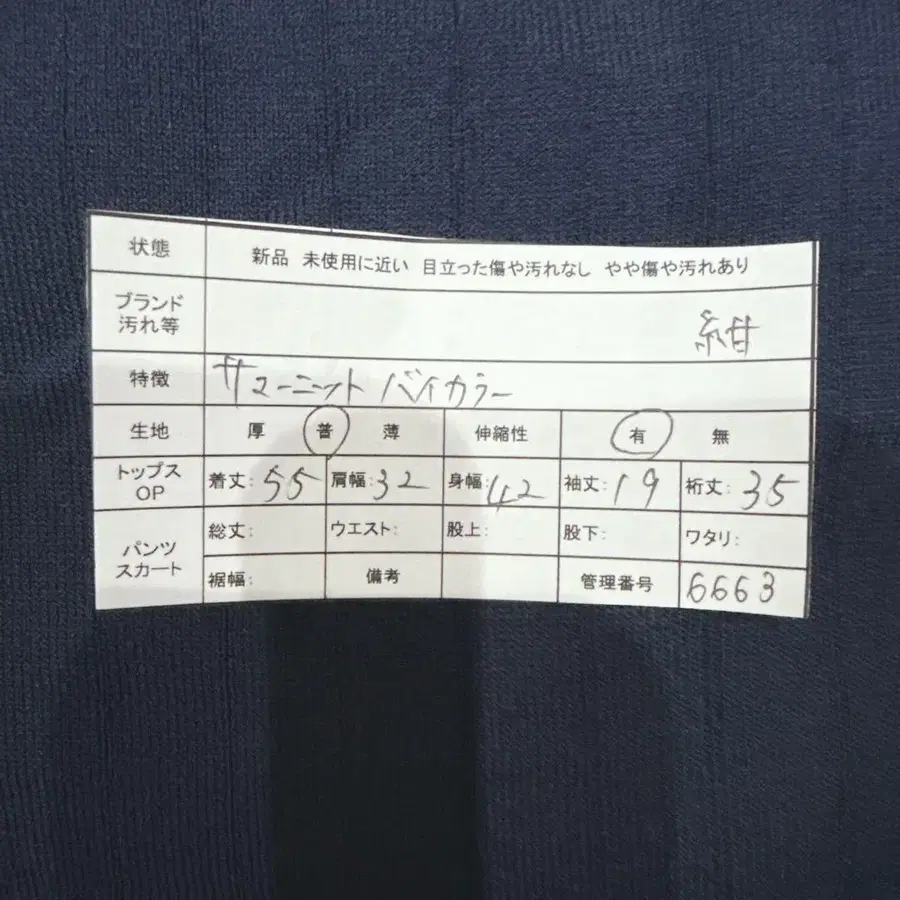 状態 新品 未使用に近い 目立った傷や汚れなし やや傷や汚れあり
ブランド
汚れ等 紺
特徴 サマーニット バイカラー
生地 厚 普 薄 伸縮性 有 無
トップス
OP 着丈: 55 肩幅: 32 身幅: 42 袖丈: 19 裄丈: 35
パンツ
スカート 総丈: ウエスト: 股上: 股下: ワタリ:
裾幅: 備考 管理番号 6663